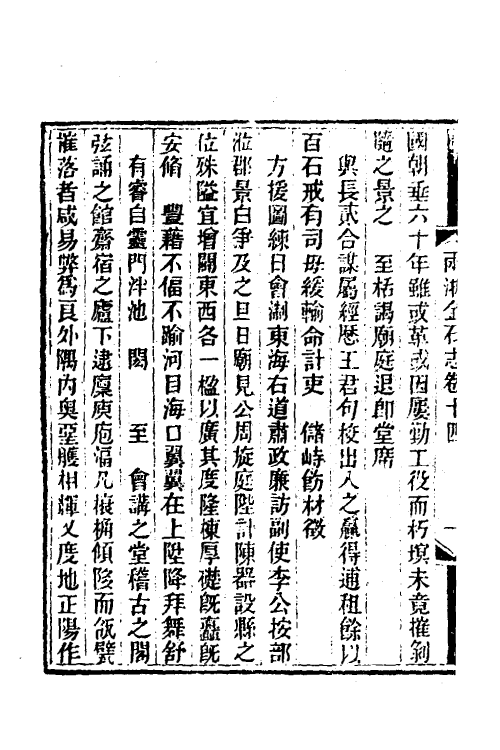 兩浙金石志卷十四 一
國朝垂六十年雖或革或因屢勤工役而朽壞未竟摧剝
隨之景之 至栝謁廟庭退卽堂席
與長貳合謀屬經歷王君句校出入之贏得逋租餘以
百石戒有司毋緩輸命計吏 儲峙飭材徵
方援圖練日會浙東海右道肅政廉訪副使李公按部
涖郡景白爭及之旦日廟見公周旋庭陛計陳器設縣之
位殊隘宜增闢東西各一楹以廣其度隆棟厚礎旣䨇旣
安脩 豐藉不偪不踰河目海口翼翼在上陞降拜舞舒
有睿自靈門泮池 閟 至 會講之堂稽古之閣
弦誦之館齋宿之廬下逮廩庾庖湢凡榱桷傾陊而瓴甓
摧落者咸易弊爲良外隅內奧堊雘相輝又度地正陽作